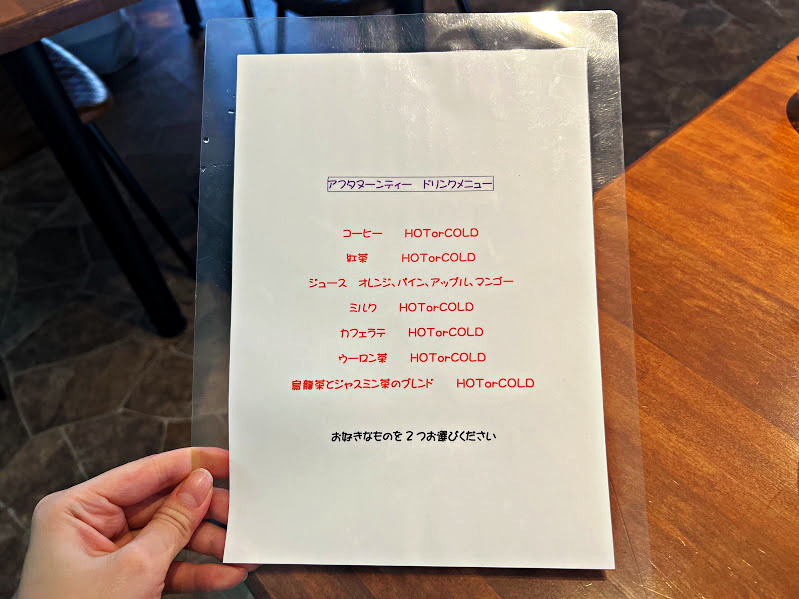 アフタヌーンティー　ドリンクメニュー
コーヒー　HOTorCOLD
紅茶　HOTorCOLD
ジュース　オレンジ、パイン、アップル、マンゴー
ミルク　HOTorCOLD
カフェラテ　HOTorCOLD
ウーロン茶　HOTorCOLD
烏龍茶とジャスミン茶のブレンド　HOTorCOLD
お好きなものを2つお選びください